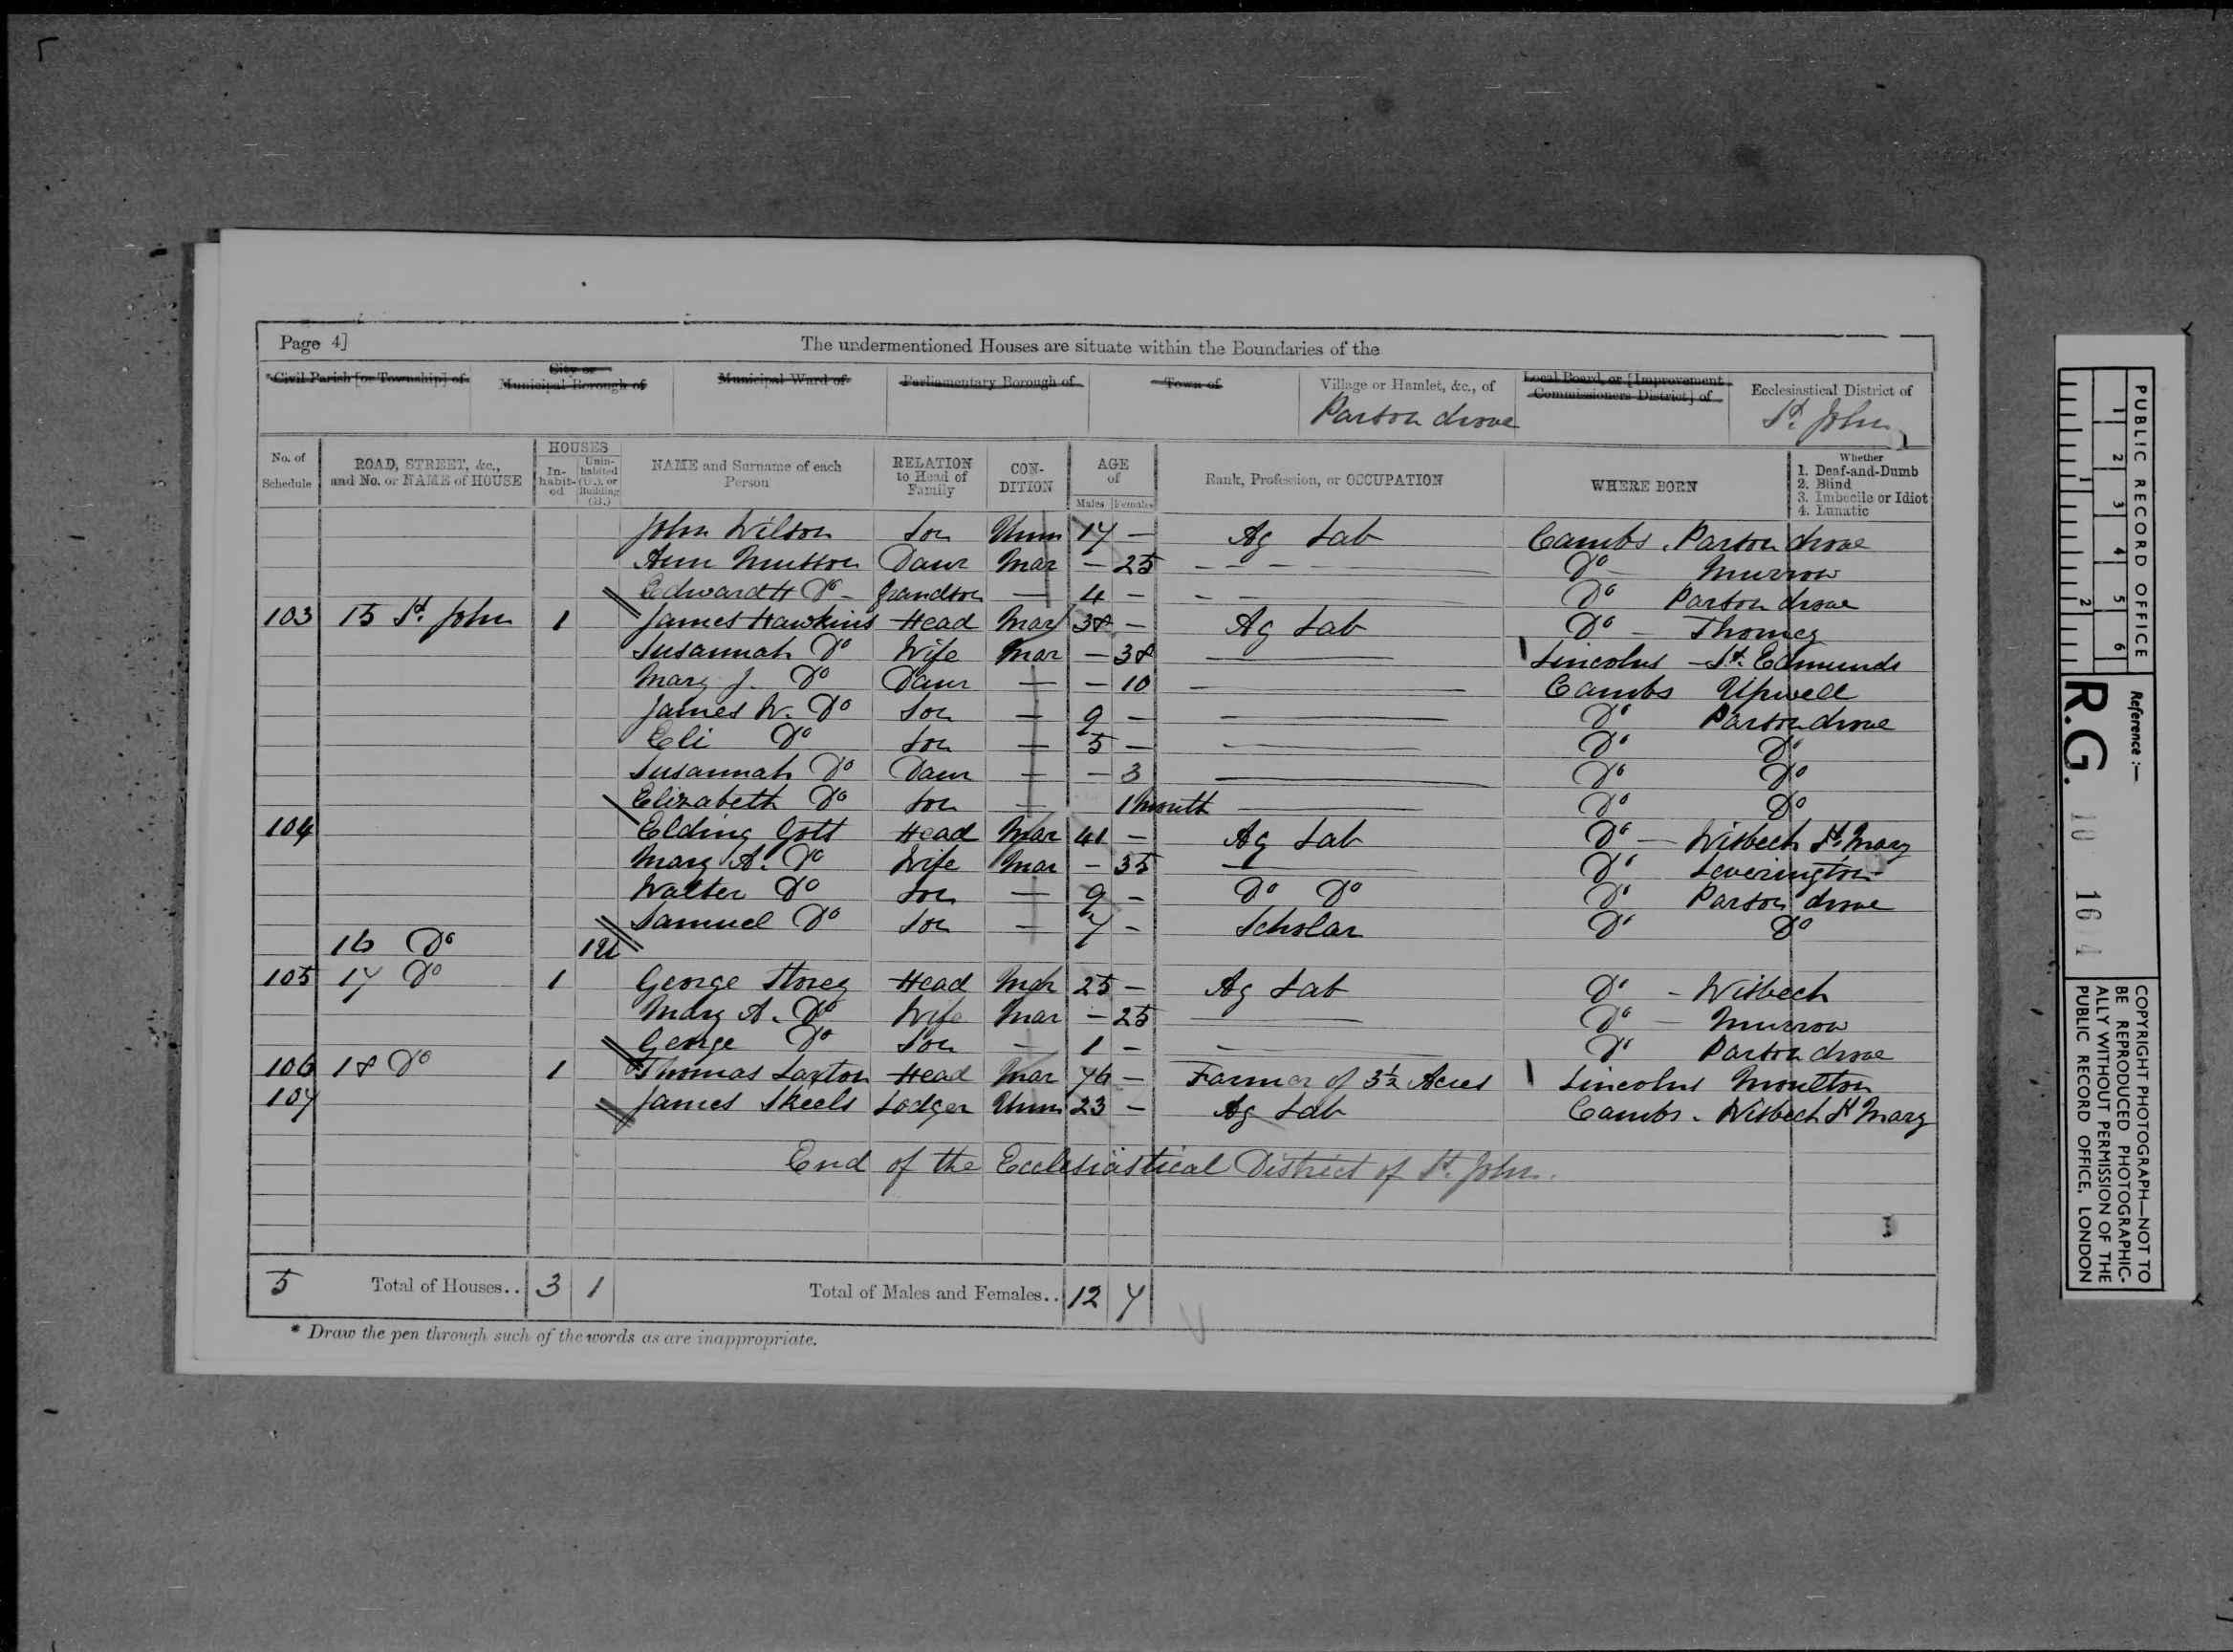 Page 4] The undermentioned Houses are situate within the Boundaries of the
*Civil Parish [or Township] of City or Municipal Borough of Municipal Ward of Parliamentary Borough of Town of Village or Hamlet, &c., of Local Board, or [Improvement Commissioners District] of Ecclesiastical District of
Parson drove St. John
No. of Schedule ROAD, STREET, &c., and No. or NAME of HOUSE HOUSES In-habit-ed Unin-habited (U.), or Building (B.) NAME and Surname of each Person RELATION to Head of Family CON-DITION AGE of Males Females Rank, Profession, or OCCUPATION WHERE BORN Whether 1. Deaf-and-Dumb 2. Blind 3. Imbecile or Idiot 4. Lunatic
John Wilson Son Unm 17 — Ag Lab Cambs. Parson drove
Ann Musson Daur Mar — 25 — Do — Murrow
Edward H Do — Grandson — 4 — — Do Parson drove
103 15 St. John 1 James Hawkins Head Mar 38 — Ag Lab Do — Thorney
Susannah Do Wife Mar — 38 — Lincolns — St. Edmunds
Mary J. Do Daur — — 10 — Cambs Upwell
James W. Do Son — 9 — — Do Parson drove
Eli Do Son — 5 — — Do Do
Susannah Do Daur — — 3 — Do Do
Elizabeth Do Son — 1 month — Do Do
104 Elding Gott Head Mar 41 — Ag Lab Do — Wisbech St. Mary
Mary A. Do Wife Mar — 35 — Do Leverington
Walter Do Son — 9 — Do Do Do Parson drove
Samuel Do Son — 7 — Scholar Do Do
16 Do 1U
105 17 Do 1 George Storey Head Mar 25 — Ag Lab Do — Wisbech
Mary A. Do Wife Mar — 25 — Do — Murrow
George Do Son — 1 — — Do Parson drove
106 18 Do 1 Thomas Laxton Head Mar 76 — Farmer of 3½ Acres Lincolns Moulton
107 James Skeels Lodger Unm 23 — Ag Lab Cambs. Wisbech St Mary
End of the Ecclesiastical District of St. John.
5 Total of Houses.. 3 1 Total of Males and Females.. 12 7
* Draw the pen through such of the words as are inappropriate.
PUBLIC RECORD OFFICE
1 2 3 4 5 6
1 2
Reference :—
R.G. 10
COPYRIGHT PHOTOGRAPH—NOT TO
BE REPRODUCED PHOTOGRAPHIC-
ALLY WITHOUT PERMISSION OF THE
PUBLIC RECORD OFFICE, LONDON